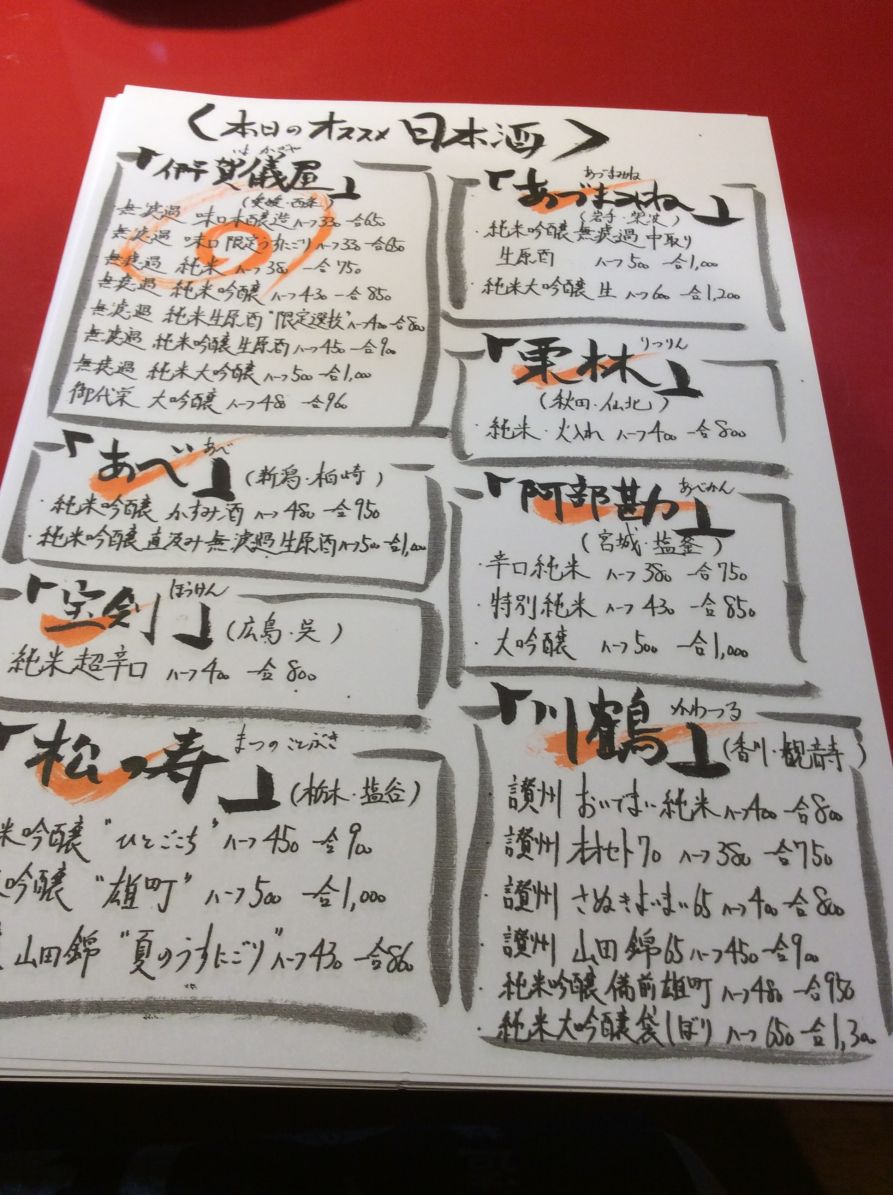 〈本日のオススメ 日本酒〉
いよ かぎや
「伊予賀儀屋」
(愛媛・西条)
無濾過 味口本醸造 ハーフ330 一合650
無濾過 味口 限定うすにごり ハーフ330 一合650
無濾過 純米 ハーフ380 一合750
無濾過 純米吟醸 ハーフ430 一合850
無濾過 純米生原酒"限定選抜" ハーフ400 一合800
無濾過 純米吟醸生原酒 ハーフ450 一合900
無濾過 純米大吟醸 ハーフ500 一合1,000
御代栄 大吟醸 ハーフ480 一合960
あべ
「あべ」(新潟・柏崎)
・純米吟醸 かすみ酒 ハーフ480 一合950
・純米吟醸 直汲み無濾過生原酒 ハーフ500 一合1,000
ほうけん
「宝剣」(広島・呉)
純米超辛口 ハーフ400 一合800
まつのことぶき
「松の寿」(栃木・塩谷)
米吟醸 "ひとごこち" ハーフ450 一合900
吟醸 "雄町" ハーフ500 一合1,000
山田錦 "夏のうすにごり" ハーフ430 一合860
あづまみね
「あづまみね」
(岩手・紫波)
・純米吟醸 無濾過 中取り
生原酒 ハーフ500 一合1,000
・純米大吟醸 生 ハーフ600 一合1,200
りつりん
「栗林」
(秋田・仙北)
・純米・火入れ ハーフ400 一合800
あべかん
「阿部勘」
(宮城・塩釜)
・辛口純米 ハーフ380 一合750
・特別純米 ハーフ430 一合850
・大吟醸 ハーフ500 一合1,000
かわつる
「川鶴」(香川・観音寺)
・讃州 おいでまい 純米 ハーフ400 一合800
・讃州 オオセト70 ハーフ380 一合750
・讃州 さぬきよいまい65 ハーフ400 一合800
・讃州 山田錦65 ハーフ450 一合900
・純米吟醸 備前雄町 ハーフ480 一合950
・純米大吟醸 袋しぼり ハーフ650 一合1,300